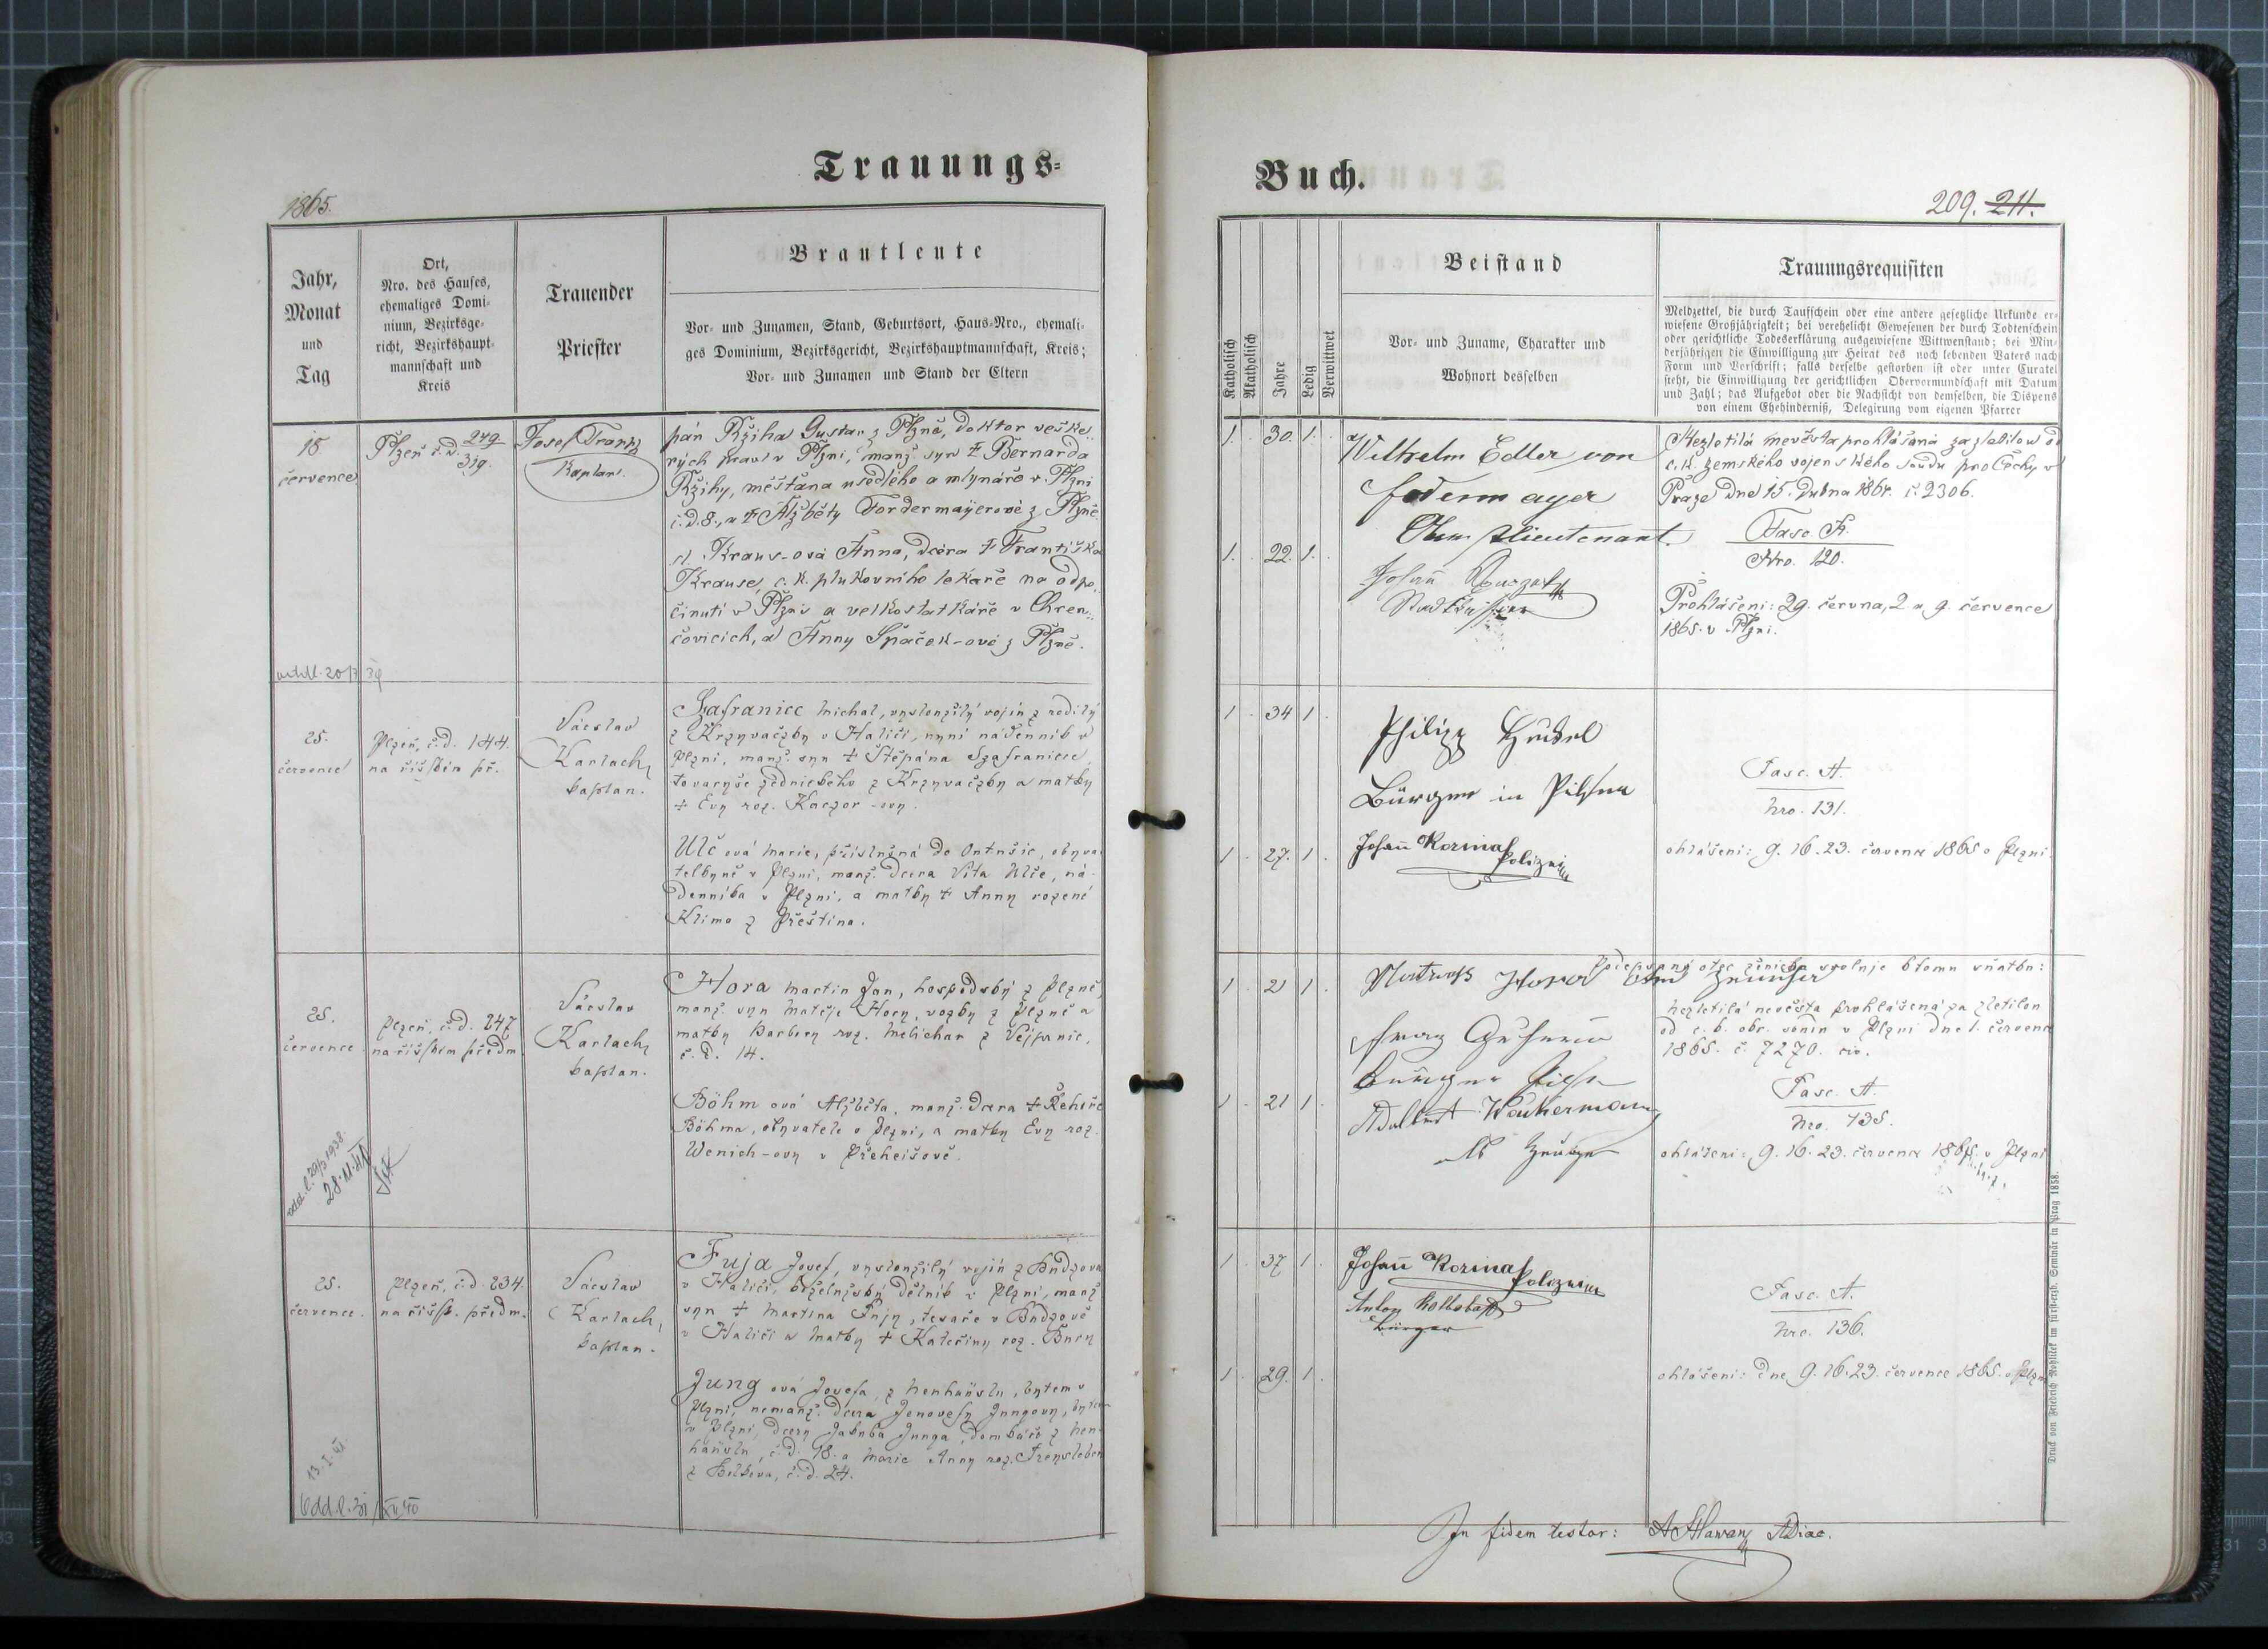 Trauungs=
1865.
Jahr,
Monat
und
Tag
Ort,
Nro. des Hauses,
ehemaliges Domi-
nium, Bezirksge-
richt, Bezirkshaupt-
mannschaft und
Kreis
Trauender
Priester
Brautleute
Vor- und Zunamen, Stand, Geburtsort, Haus-Nro., ehemali-
ges Dominium, Bezirksgericht, Bezirkshauptmannschaft, Kreis;
Vor- und Zunamen und Stand der Eltern
18.
července
Plzeň č. d. 279 319.
Josef Frank
Kaplan.
pán Ržiha Gustav z Plzně, doktor veške-
rých práv v Plzni, manž. syn † Bernarda
Ržihy, měšťana usedlého a mlynáře v Plzni
č. d. 8., a † Alžběty Fordermayerové z Plzně.
Kraus-ová Anna, dcéra † Františka
Krause, c. k. plukovního lekaře na odpo-
činutí v Plzni a velkostatkáře v Chren-
čovicích, a Anny Špaček-ové z Plzně.
25.
července
Plzeň, č. d. 144.
na říšském př.
Václav
Karlach,
kaplan.
Szafraniec Michal, vysloužilý vojín z rodilý
z Krzyvaczky v Haliči, nyní nádenník v
Plzni, manž. syn † Štěpána Szafraniec,
tovaryše zednického z Krzyvaczky a matky
† Evy roz. Kaczor-ovy.
Ulč ová Marie, příslušná do Ontušic, obyva-
telkyně v Plzni, manž. dcera Víta Ulče, ná-
denníka v Plzni, a matky † Anny rozené
Klima z Přeština.
25.
července
Plzeň, č. d. 247
na říšském předm.
Václav
Karlach,
kaplan.
Hora Martin Jan, hospodský z Plzně,
manž. syn Matěje Hory, vozky z Plzně a
matky Barbory roz. Melichar z Vejprnic,
č. d. 14.
Böhm ová Alžběta, manž. dcera † Řehoře
Böhma, obyvatele v Plzni, a matky Evy roz.
Wenich-ovy v Přeheišově.
28. 11. 41
25.
července.
Plzeň, č. d. 234.
na říšsk. předm.
Václav
Karlach,
kaplan.
Fuja Josef, vysloužilý vojín z Budzova
v Haliči, cihelnský dělník v Plzni, manž.
syn † Martina Fujy, tesaře v Budzově
v Haliči a matky † Kateřiny roz. Bury
Jung ová Josefa, z Neuhäuslu, bytem v
Plzni, nemanž. dcera Jenovefy Jungovy, bytem
v Plzni, dcery Jakuba Junga, domkáře z Neu-
häuslu, č. d. 18. a Marie Anny roz.
č. d. 24.
13. I. 41.
Buch.
209. 211.
Katholisch
Akatholisch
Jahre
Ledig
Verwittwet
Beistand
Vor- und Zuname, Charakter und
Wohnort desselben
Trauungsrequisiten
Meldzettel, die durch Taufschein oder eine andere gesetzliche Urkunde er-
wiesene Großjährigkeit; bei verehelicht Gewesenen der durch Todtenschein
oder gerichtliche Todeserklärung ausgewiesene Wittwenstand; bei Min-
derjährigen die Einwilligung zur Heirat des noch lebenden Vaters nach
Form und Vorschrift; falls derselbe gestorben ist oder unter Curatel
steht, die Einwilligung der gerichtlichen Obervormundschaft mit Datum
und Zahl; das Aufgebot oder die Nachsicht von demselben, die Dispens
von einem Ehehinderniß, Delegirung vom eigenen Pfarrer
1. 30. 1.
Wilhelm Edler von
Fodermayer
Oberstlieutenant.
Nezletilá nevěsta prohlášena za zletilou od
c. k. zemského vojenského soudu pro Čechy v
Praze dne 15. dubna 1864. č. 2306.
Fasc A.
Nro. 120.
1. 22. 1.
Johann
Prohlášení: 29. června, 2. a 9. července
1865. v Plzni.
1 34 1
Philipp
Bürger in Pilsen
Fasc. A.
Nro. 131.
1 27. 1
Johann Korinař
Polizei
ohlášení: 9. 16. 23. července 1865 v Plzni.
1 21 1
Podepsaný otec ženicha svoluje k tomu sňatku:
nezletilá nevěsta prohlášená za zletilou
od c. k. okr. soudu v Plzni dne 1. července
1865. č. 7270. civ.
Fasc. A.
Nro. 135.
1 21 1
Adalbert Wankermann
als Zeuge
ohlášení: 9. 16. 23. července 1865. v Plzni
1 37 1
Johann Korinař
Anton
Bürger
Fasc. A.
Nro. 136.
1 29. 1
ohlášení: dne 9. 16. 23. července 1865. v Plzni
Druck von Friedrich Rohliček im fürsterzb. Seminär in Prag 1858.
In fidem testor: Diac.